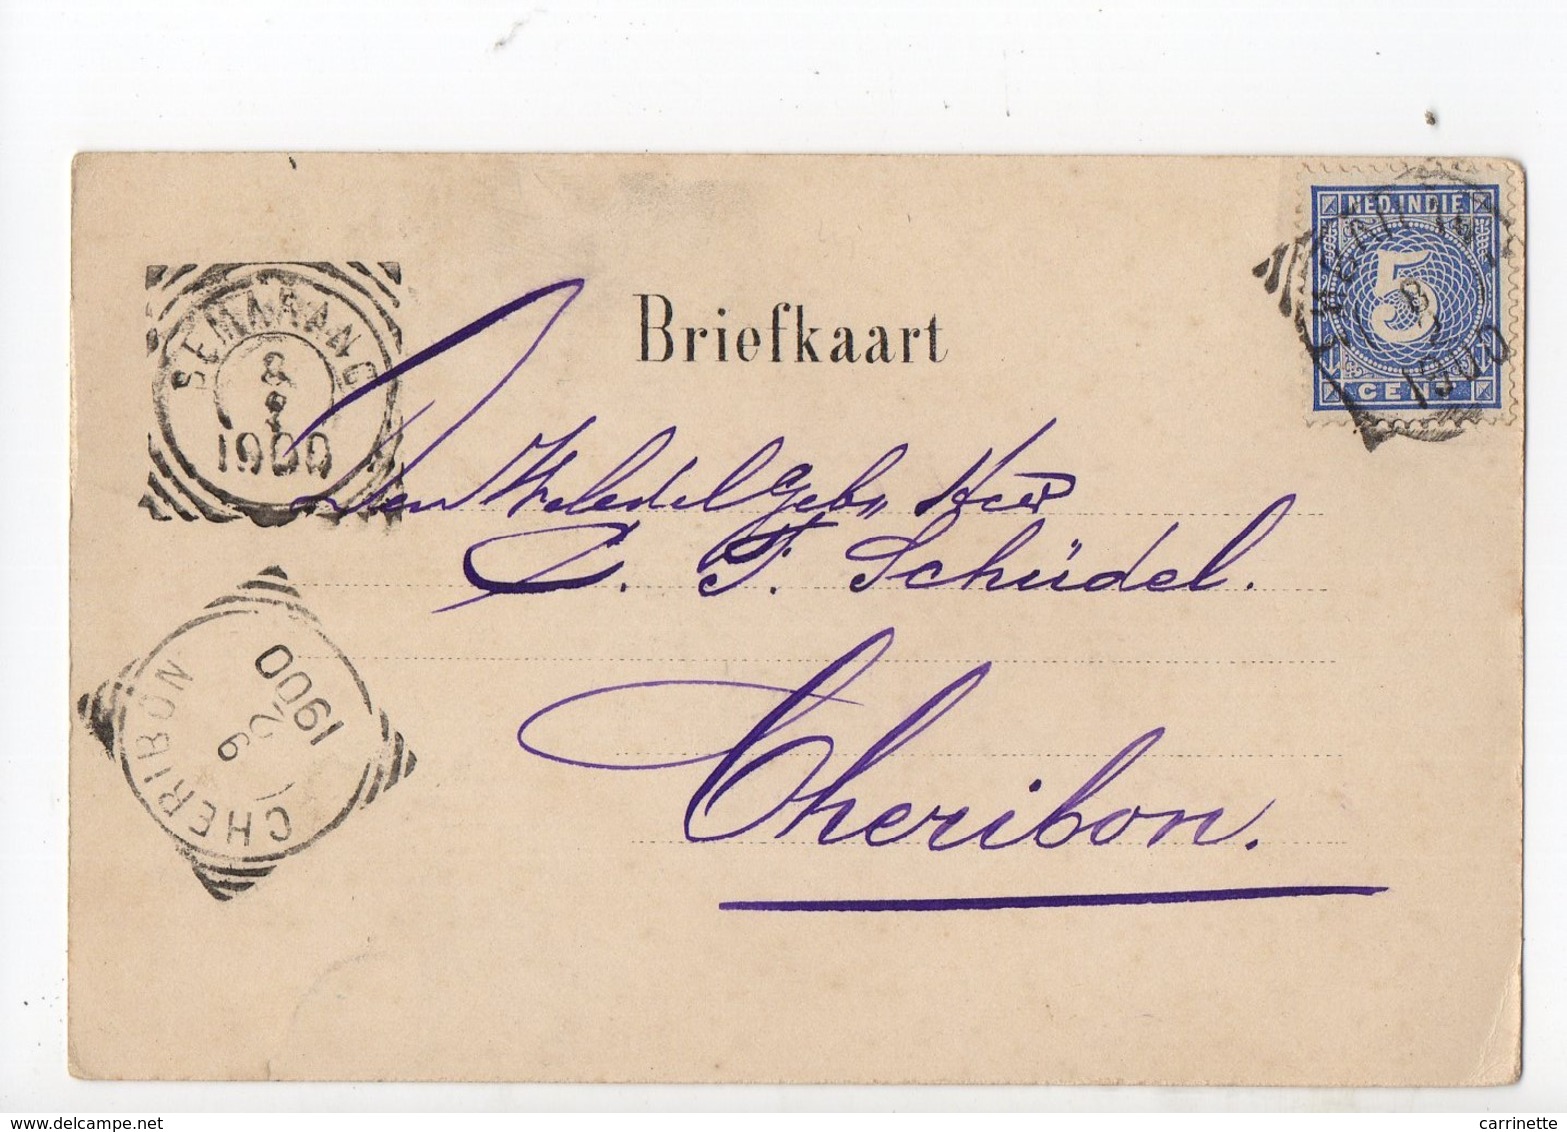 Briefkaart
NED. INDIE
5
CENT
1900
SEMARANG
8
1900
Den WelEdelgeb. Heer
C. F. Schüdel.
Cheribon.
CHERIBON
9
1900
delcampe.net
carrinette